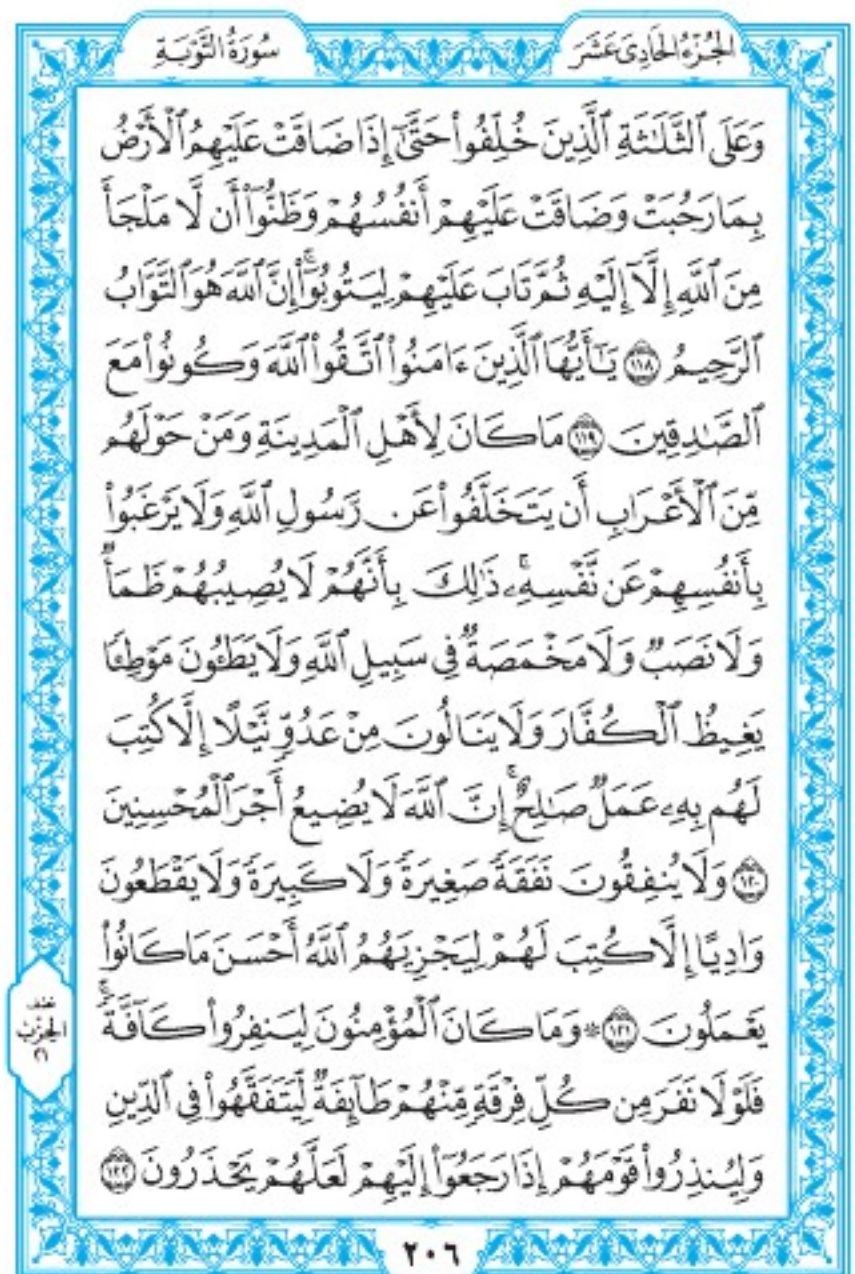 الجُزْءُ الحَادِىَ عَشَرَ
سُورَةُ التَّوْبَةِ
وَعَلَى ٱلثَّلَٰثَةِ ٱلَّذِينَ خُلِّفُوا۟ حَتَّىٰٓ إِذَا ضَاقَتْ عَلَيْهِمُ ٱلْأَرْضُ
بِمَا رَحُبَتْ وَضَاقَتْ عَلَيْهِمْ أَنفُسُهُمْ وَظَنُّوٓا۟ أَن لَّا مَلْجَأَ
مِنَ ٱللَّهِ إِلَّآ إِلَيْهِ ثُمَّ تَابَ عَلَيْهِمْ لِيَتُوبُوٓا۟ ۚ إِنَّ ٱللَّهَ هُوَ ٱلتَّوَّابُ
ٱلرَّحِيمُ ١١٨ يَٰٓأَيُّهَا ٱلَّذِينَ ءَامَنُوا۟ ٱتَّقُوا۟ ٱللَّهَ وَكُونُوا۟ مَعَ
ٱلصَّٰدِقِينَ ١١٩ مَا كَانَ لِأَهْلِ ٱلْمَدِينَةِ وَمَنْ حَوْلَهُم
مِّنَ ٱلْأَعْرَابِ أَن يَتَخَلَّفُوا۟ عَن رَّسُولِ ٱللَّهِ وَلَا يَرْغَبُوا۟
بِأَنفُسِهِمْ عَن نَّفْسِهِۦ ۚ ذَٰلِكَ بِأَنَّهُمْ لَا يُصِيبُهُمْ ظَمَأٌ
وَلَا نَصَبٌ وَلَا مَخْمَصَةٌ فِى سَبِيلِ ٱللَّهِ وَلَا يَطَـُٔونَ مَوْطِئًا
يَغِيظُ ٱلْكُفَّارَ وَلَا يَنَالُونَ مِنْ عَدُوٍّ نَّيْلًا إِلَّا كُتِبَ
لَهُم بِهِۦ عَمَلٌ صَٰلِحٌ ۚ إِنَّ ٱللَّهَ لَا يُضِيعُ أَجْرَ ٱلْمُحْسِنِينَ
١٢٠ وَلَا يُنفِقُونَ نَفَقَةً صَغِيرَةً وَلَا كَبِيرَةً وَلَا يَقْطَعُونَ
وَادِيًا إِلَّا كُتِبَ لَهُمْ لِيَجْزِيَهُمُ ٱللَّهُ أَحْسَنَ مَا كَانُوا۟
يَعْمَلُونَ ١٢١ ۞ وَمَا كَانَ ٱلْمُؤْمِنُونَ لِيَنفِرُوا۟ كَآفَّةً ۚ
فَلَوْلَا نَفَرَ مِن كُلِّ فِرْقَةٍ مِّنْهُمْ طَآئِفَةٌ لِّيَتَفَقَّهُوا۟ فِى ٱلدِّينِ
وَلِيُنذِرُوا۟ قَوْمَهُمْ إِذَا رَجَعُوٓا۟ إِلَيْهِمْ لَعَلَّهُمْ يَحْذَرُونَ ١٢٢
الحِزْب
٢١
٢٠٦